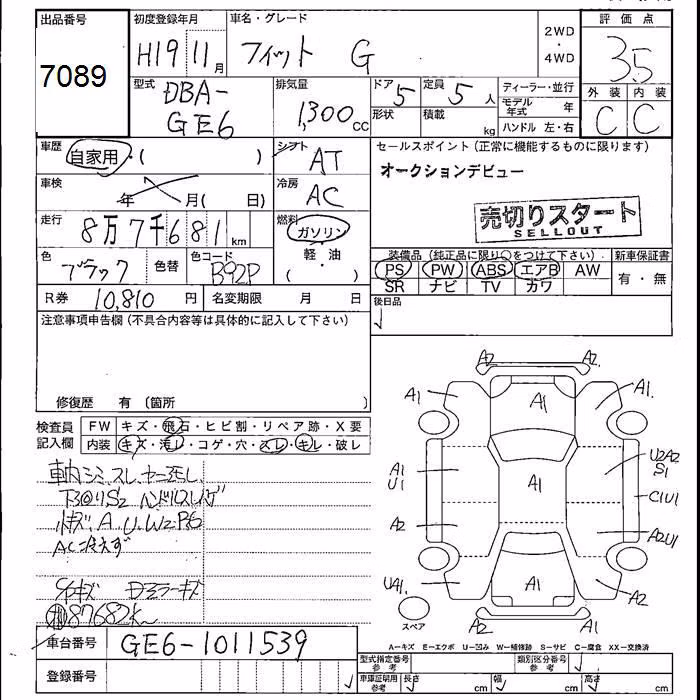 出品番号
7089
初度登録年月
H19 11月
車名・グレード
フィット G
2WD
・
4WD
評価点
3.5
外装 内装
C C
型式
DBA-
GE6
排気量
1,300cc
ドア 5
形状
定員 5人
積載 kg
ディーラー・並行
モデル年式 年
ハンドル 左・右
車歴
自家用・( )
シフト
AT
車検
年 月( 日)
冷房
AC
走行
8万7千681km
燃料
ガソリン
・
軽・油
( )
色
ブラック
色替
色コード
B92P
R券 10,810円
名変期限 月 日
セールスポイント(正常に機能するものに限ります)
オークションデビュー
売切りスタート
SELLOUT
装備品(純正品に限り○をつけて下さい)
新車保証書
PS PW ABS エアB AW
SR ナビ TV カワ
有・無
後日品
注意事項申告欄(不具合内容等は具体的に記入して下さい)
修復歴 有 〔箇所 〕
検査員
記入欄
FW キズ・飛石・ヒビ割・リペア跡・X要
内装 キズ・汚レ・コゲ・穴・スレ・キレ・破レ
車内シミ、スレ
ハンドルスレ
小キズ、A、U、W2
AC冷えず
Dミラーキズ
87682K
A2 A2
A1 A1 A1.
A1
U1
A1
U2A2
S1
C1U1
A2 A2U1
UA1. A1 A2
A2 A1
スペア
A−キズ E−エクボ U−凹み W−補修跡 S−サビ C−腐食 XX−交換済
車台番号 GE6-1011539
登録番号
型式指定番号
参考
類別区分番号
参考
車庫証明用
参考
長さ cm 幅 cm 高さ cm